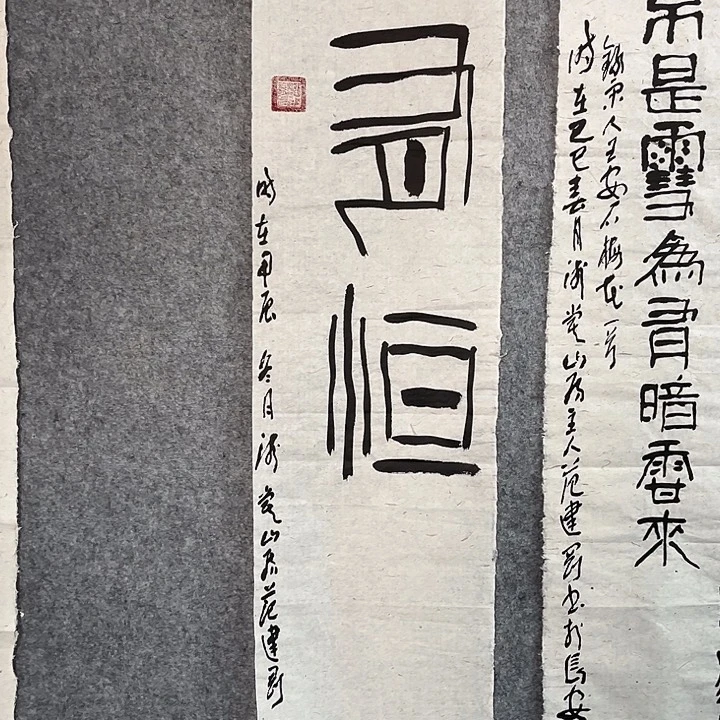 不是雪為有暗香來
錄宋人王安石梅花一首
時在乙巳春月於堂山房主人范建罡書於長安
有恒
時在甲辰冬月 堂山房范建罡